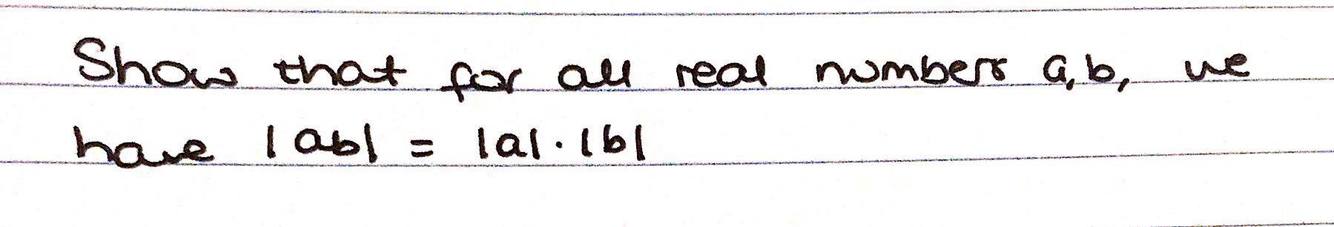 Show that for all real numbers a,b, we
have |ab| = |a|·|b|